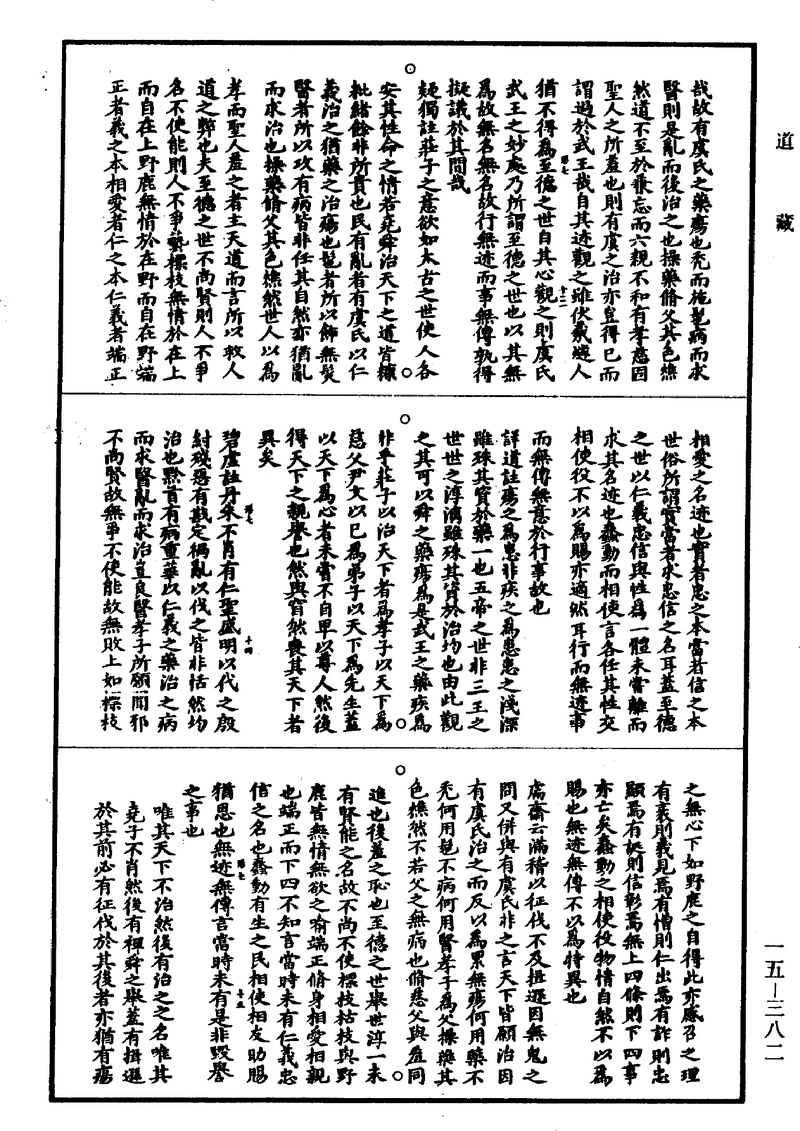 道藏
哉故有虞氏之藥瘍也禿而施髢病而求
醫則是亂而後治之也操藥脩父其色燋
然道不至於兼忘而六親不和有孝慈因
聖人之所羞也則有虞之治亦豈得已而
謂過於武王哉自其迹觀之雖伏羲燧人
猶不得為至德之世自其心觀之則虞氏
武王之妙處乃所謂至德之世也以其無
為故無名無名故行無迹而事無傳孰得
擬議於其間哉
疑獨註莊子之意欲如太古之世使人各
安其性命之情若堯舜治天下之道皆糠
粃緒餘非所貴也民有亂者有虞氏以仁
義治之猶藥之治瘍也髢者所以飾無髮
醫者所以攻有病皆非任其自然亦猶亂
而求治也操藥脩父其色燋然世人以為
孝而聖人羞之者主天道而言所以救人
道之弊也夫至德之世不尚賢則人不爭
名不使能則人不爭藝標枝無情於在上
而自在上野鹿無情於在野而自在野端
正者義之本相愛者仁之本仁義者端正
相愛之名迹也實者忠之本當者信之本
世俗所謂實當者求忠信之名耳蓋至德
之世以仁義忠信與性為一體未嘗離而
求其名迹也蠢動而相使言各任其性交
相使役不以為賜亦適然耳行而無迹事
而無傳無意於行事故也
詳道註瘍之為患非疾之為患患之淺深
雖殊其資於藥一也五帝之世非三王之
世世之淳漓雖殊其資於治均也由此觀
之其可以舜之藥瘍為是武王之藥疾為
非乎莊子以治天下者為孝子以天下為
慈父尹文以已為弟子以天下為先生蓋
以天下為心者未嘗不自卑以尊人然後
得天下之親譽也然與窅然喪其天下者
異矣
碧虛註丹朱不肖有仁聖盛明以代之殷
紂殘惡有戡定禍亂以伐之皆非恬然均
治也黔首有病重華以仁義之藥治之病
而求醫亂而求治豈良醫孝子所願聞邪
不尚賢故無爭不使能故無敗上如標枝
之無心下如野鹿之自得此亦感召之理
有衰則義見焉有憎則仁出焉有詐則忠
顯焉有誕則信彰焉無上四條則下四事
亦亡矣蠢動之相使役物情自然不以為
賜也無迹無傳不以為特異也
鬳齋云滿稽以征伐不及揖遜因無鬼之
問又併與有虞氏非之言天下皆願治因
有虞氏治之而反以為累無瘍何用藥不
禿何用髢不病何用醫孝子為父操藥其
色燋然不若父之無病也脩慈父與羞同
進也後羞之恥也至德之世舉世淳一未
有賢能之名故不尚不使標枝枯枝與野
鹿皆無情無欲之喻端正脩身相愛相親
也端正而下四不知言當時未有仁義忠
信之名也蠢動有生之民相使相友助賜
猶恩也無迹無傳言當時未有是非毀譽
之事也
唯其天下不治然後有治之之名唯其
堯子不肖然後有禪舜之舉蓋有揖遜
於其前必有征伐於其後者亦猶有瘍
一五—三八二